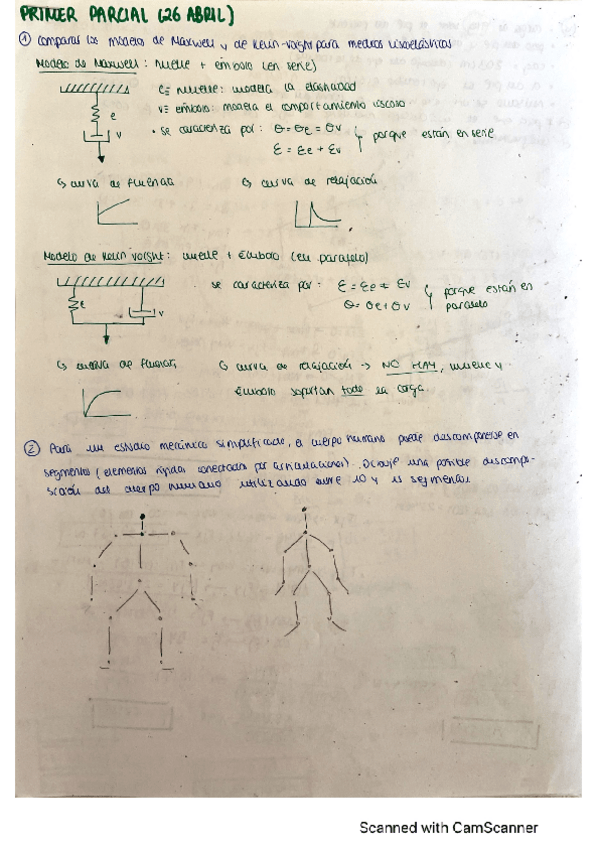 PRIMER PARCIAL (26 ABRIL)
① Comparar los modelos de Maxwell y de Kelvin-Voight para medios viscoelásticos
Modelo de Maxwell: Muelle + émbolo (en serie)
e ≡ muelle: modela la elasticidad
v ≡ émbolo: modela el comportamiento viscoso
e
v
• se caracteriza por: σ = σe = σv
ε = εe + εv
porque están en serie
↳ curva de fluencia
↳ curva de relajación
Modelo de Kelvin Voight: muelle + Émbolo (en paralelo)
se caracteriza por: ε = εe = εv
σ = σe + σv
porque están en
paralelo
E
v
↳ curva de fluencia
↳ curva de relajación → NO HAY, muelle y
Émbolo soportan toda la carga
② Para un estudio mecánico simplificado, el cuerpo humano puede descomponerse en
segmentos (elementos rígidos conectados por articulaciones). Dibuje una posible descompo-
sición del cuerpo humano utilizando entre 10 y 15 segmentos
Scanned with CamScanner